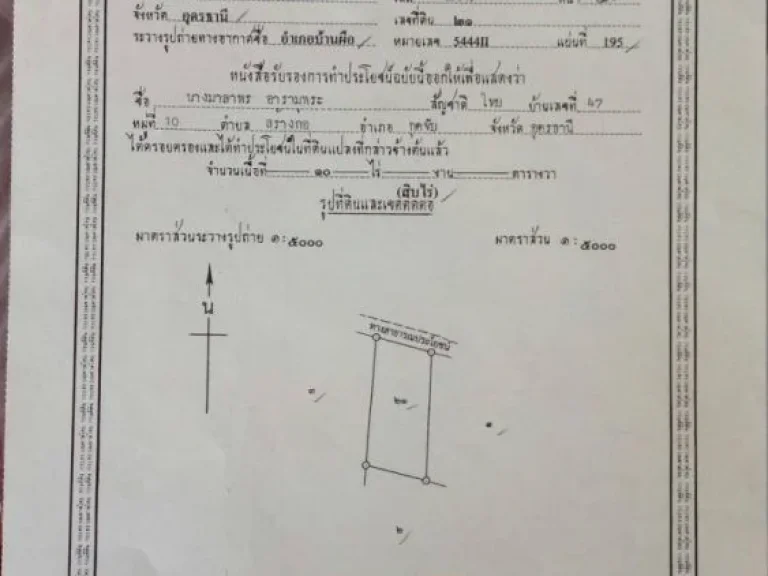 จังหวัด อุดรธานี เลขที่ดิน ๒๑
ระวางรูปถ่ายทางอากาศชื่อ อำเภอบ้านผือ หมายเลข 5444II แผ่นที่ 195
หนังสือรับรองการทำประโยชน์ฉบับนี้ออกให้เพื่อแสดงว่า
ชื่อ นางมาลาพร สัญชาติ ไทย บ้านเลขที่ 47
หมู่ที่ 10 ตำบล สร้างก่อ อำเภอ กุดจับ จังหวัด อุดรธานี
ได้ครอบครองและได้ทำประโยชน์ในที่ดินแปลงที่กล่าวข้างต้นแล้ว
จำนวนเนื้อที่ ๑๐ ไร่ งาน ตารางวา
(สิบไร่)
รูปที่ดินและเขตติดต่อ
มาตราส่วนระวางรูปถ่าย ๑:๕๐๐๐ มาตราส่วน ๑:๕๐๐๐
น
ทางสาธารณประโยชน์
๒๑
๒